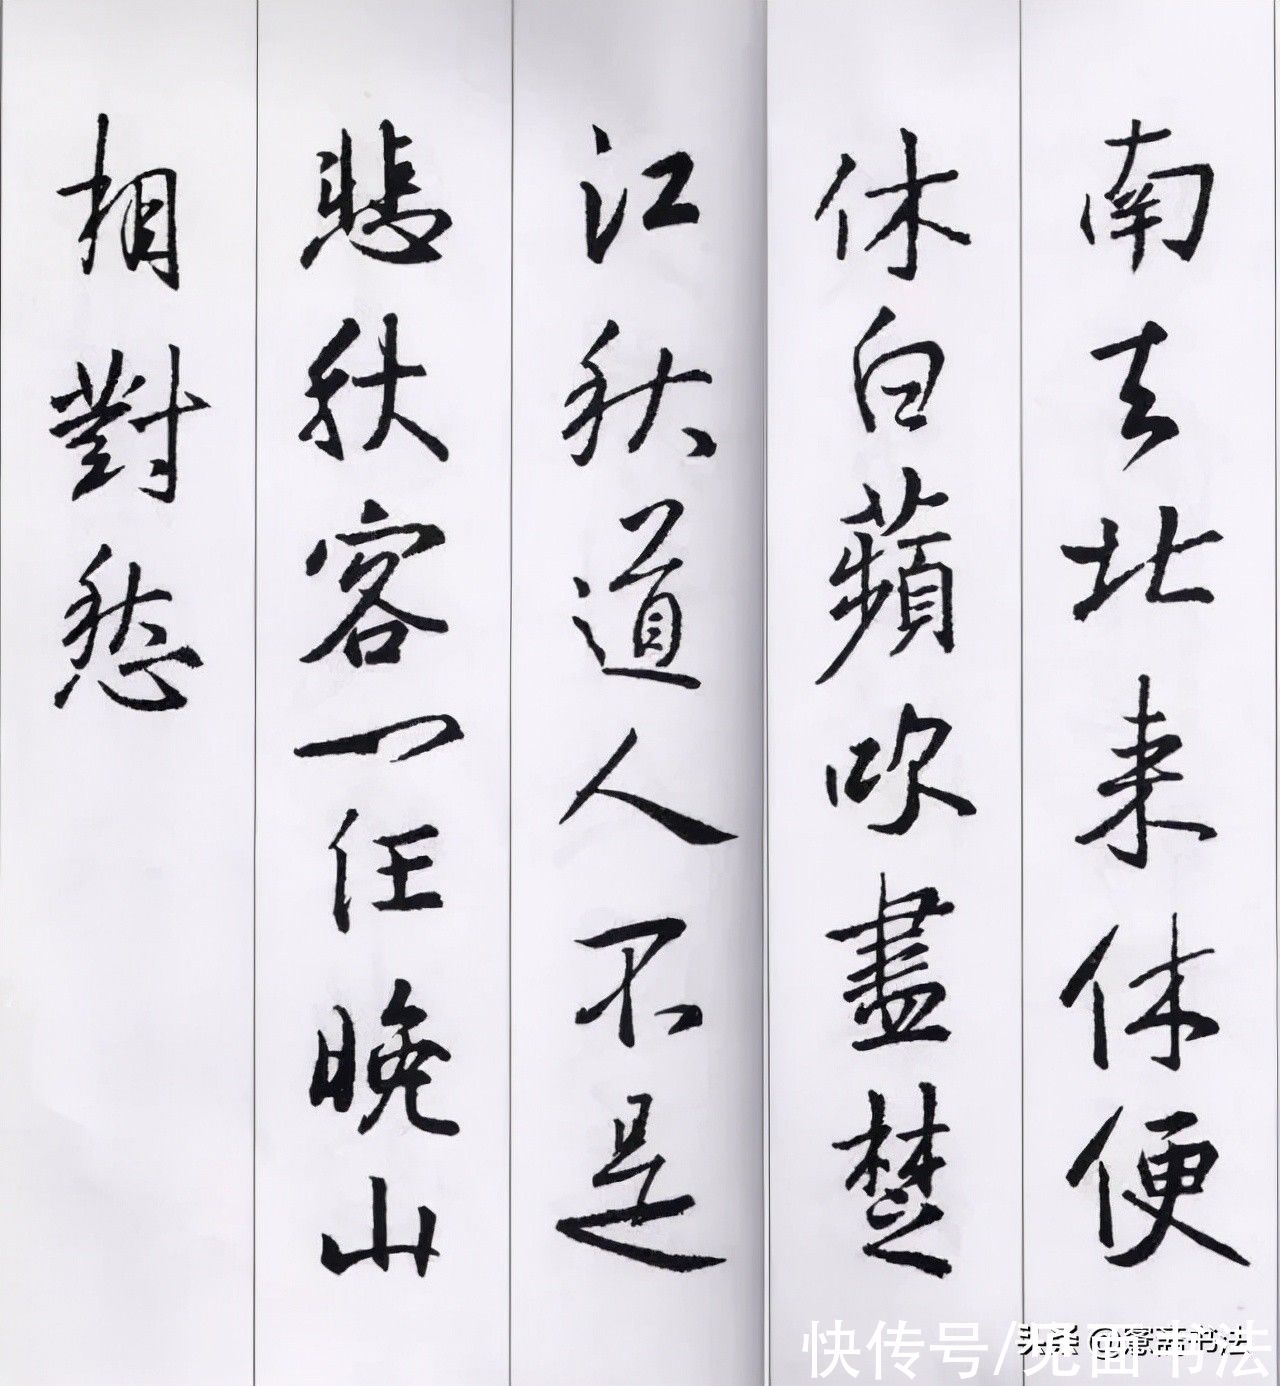 南去北来休便
休白蘋吹盡楚
江秋道人不是
悲秋客一任晚山
相對愁
快传号/见面书法
头条 @意洁书法